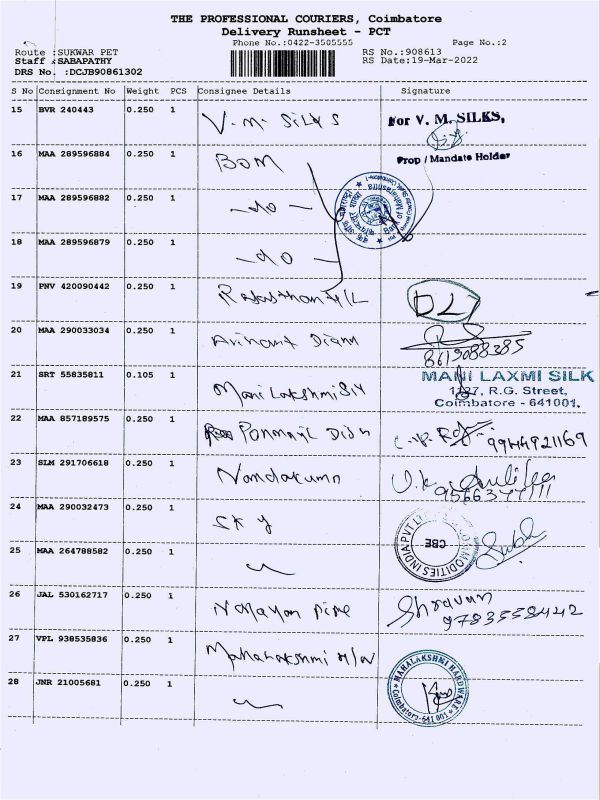 THE PROFESSIONAL COURIERS, Coimbatore
Delivery Runsheet - PCT
Phone No.:0422-3505555 Page No.:2
Route :SUKWAR PET RS No.:908613
Staff :SABAPATHY RS Date:19-Mar-2022
DRS No. :DCJB90861302
S No Consignment No Weight PCS Consignee Details Signature
15 BVR 240443 0.250 1 V. M. SILKS For V. M. SILKS,
Prop / Mandate Holder
16 MAA 289596884 0.250 1 BOM
17 MAA 289596882 0.250 1 -do- Bank of Maharashtra
18 MAA 289596879 0.250 1 -do-
19 PNV 420090442 0.250 1 Rajasthan
20 MAA 290033034 0.250 1 Arihant
8619088385
21 SRT 55835811 0.105 1 Mani Lakshmi MANI LAXMI SILK
R.G. Street,
Coimbatore - 641001.
22 MAA 857189575 0.250 1 9944921169
23 SLM 291706618 0.250 1 Nandakumar
24 MAA 290032473 0.250 1 SKY COMMODITIES INDIA PVT LTD
CBE
25 MAA 264788582 0.250 1
26 JAL 530162717 0.250 1 Narayan Pipe Shravan
9783558442
27 VPL 938535836 0.250 1 Mahalakshmi H/W MAHALAKSHMI HARDWARE
Coimbatore-641 001
28 JNR 21005681 0.250 1